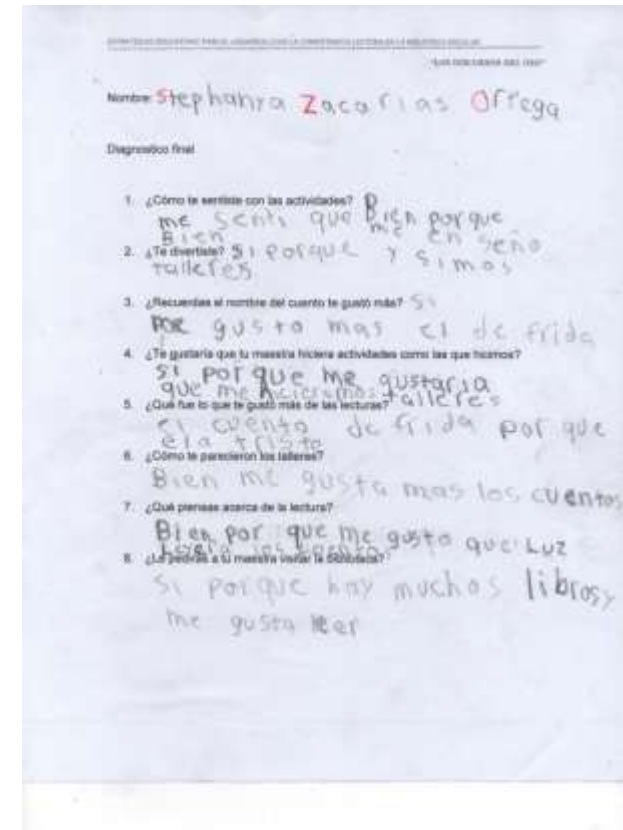 ESTRATEGIAS EDUCATIVAS PARA EL DESARROLLO DE LA COMPETENCIA LECTORA EN LA BIBLIOTECA ESCOLAR
Nombre: Stephanya Zacarias Orrega
Diagnostico final
1. ¿Cómo te sentiste con las actividades?
me senti que Bien porque
Bien me en seño
2. ¿Te divertiste? Si Porque y simos
talleres
3. ¿Recuerdas el nombre del cuento te gustó más? Si
gusto mas el de frida
4. ¿Te gustaría que tu maestra hiciera actividades como las que hicimos?
Si por que me gustaria
que me hicieramos talleres
5. ¿Qué fue lo que te gustó más de las lecturas?
el cuento de frida por que
ela triste
6. ¿Cómo te parecieron los talleres?
Bien me gusta mas los cuentos
7. ¿Qué piensas acerca de la lectura?
Bien por que me gusto que Luz
8. ¿Le pedirías a tu maestra visitar la biblioteca?
Si porque hay muchos libros y
me gusta leer